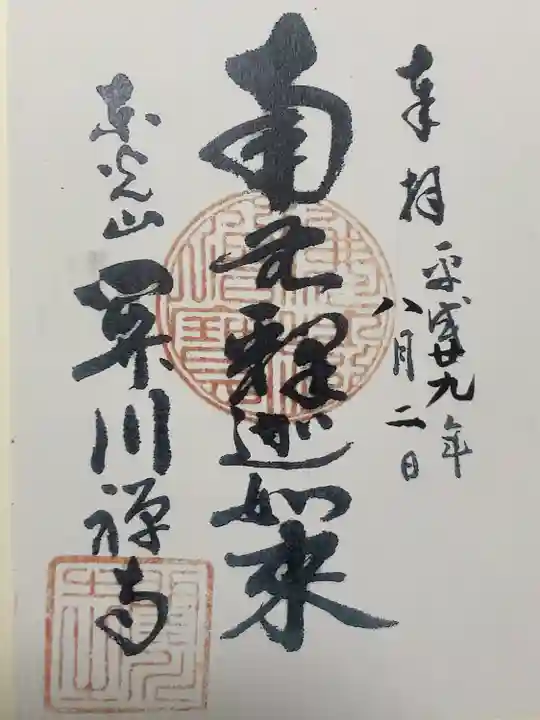 奉拝
平成廿九年
八月二日
南無釋迦如来
東光山
開川禅寺